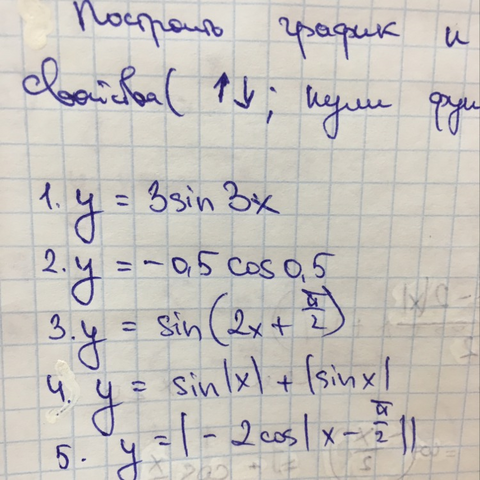 Построить график и
свойства( ↑↓; нули фун
1. y = 3sin3x
2. y = -0,5 cos0,5
3. y = sin(2x + π/2)
4. y = sin|x| + |sinx|
5. y = |-2cos|x - π/2||